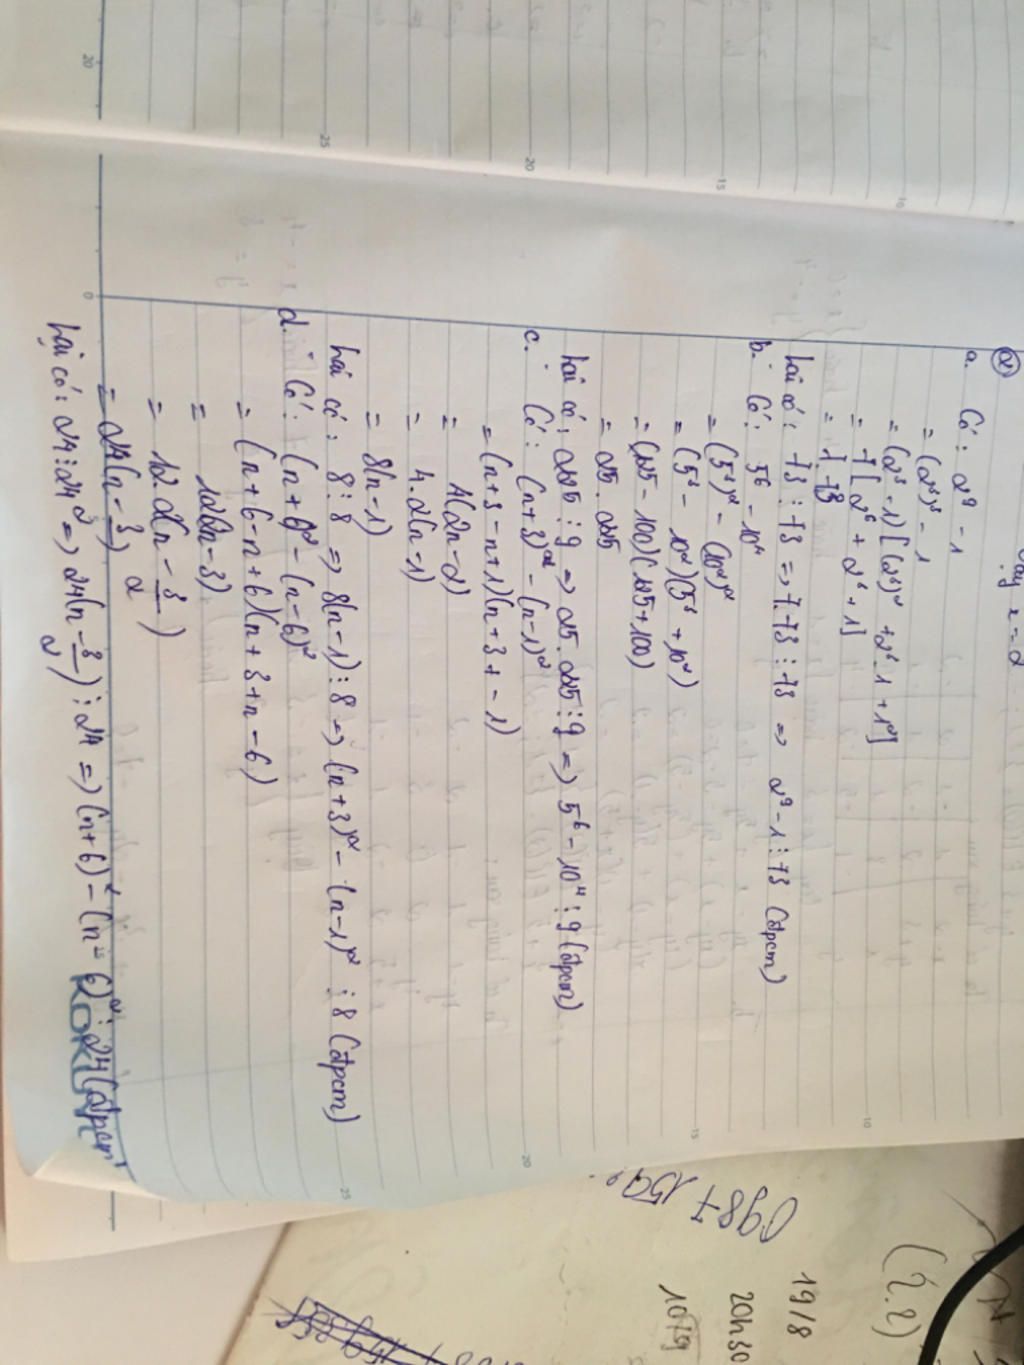 Vậy x = 2
②
a. Có: 2⁹ - 1
= (2³)³ - 1
= (2³ - 1)[(2³)² + 2³.1 + 1²]
= 7[2⁶ + 2³ + 1]
= 7.73
Lại có: 73 ⋮ 73 => 7.73 ⋮ 73 => 2⁹ - 1 ⋮ 73 (đpcm)
b. Có: 5⁶ - 10⁴
= (5³)² - (10²)²
= (5³ - 10²)(5³ + 10²)
= (125 - 100)(125 + 100)
= 25.225
Lại có: 225 ⋮ 9 => 25.225 ⋮ 9 => 5⁶ - 10⁴ ⋮ 9 (đpcm)
c. Có: (n+3)² - (n-1)²
= (n+3-n+1)(n+3+-1)
= 4(2n-2)
= 4.2(n-1)
= 8(n-1)
Lại có: 8 ⋮ 8 => 8(n-1) ⋮ 8 => (n+3)² - (n-1)² ⋮ 8 (đpcm)
d. Có: (n+6)² - (n-6)²
= (n+6-n+6)(n+3+n-6)
= 12(2n-3)
= 12.2(n - 3/2)
= 24(n - 3/2)
Lại có: 24 ⋮ 24 => 24(n - 3/2) ⋮ 24 => (n+6)² - (n-6)² ⋮ 24 (đpcm)
KOKUYO
0987 159
19/8
20h30
1079
(2.2)